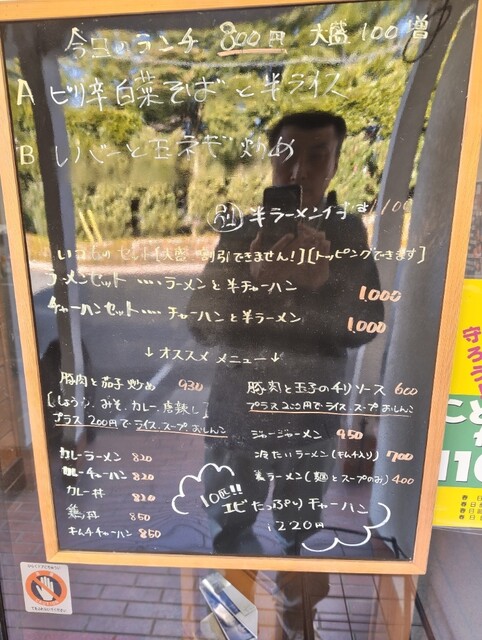 今日のランチ 800円 大盛100増
A ピリ辛白菜そばと半ライス
B レバーと玉ネギ炒め
半ラーメン付は 100
いつものセット [大盛 割引できません!] [トッピングできます]
ラーメンセット ‥‥ ラーメンと半チャーハン 1,000
チャーハンセット ‥‥ チャーハンと半ラーメン 1,000
↓オススメ メニュー↓
豚肉と茄子炒め 930
[しょうゆ、みそ、カレー、
プラス 200円で ライス、スープ、おしんこ
カレーラーメン 820
カレーチャーハン 820
カレー丼 820
850
キムチチャーハン 850
豚肉と玉子のチリソース 600
プラス200円で ライス、スープ、おしんこ
ジャージャーメン 950
冷たいラーメン (キムチ入り) 700
ラーメン (麺とスープのみ) 400
10匹!!
エビたっぷり チャーハン
1220円
守ろう
こど
110
春日
春日
春日